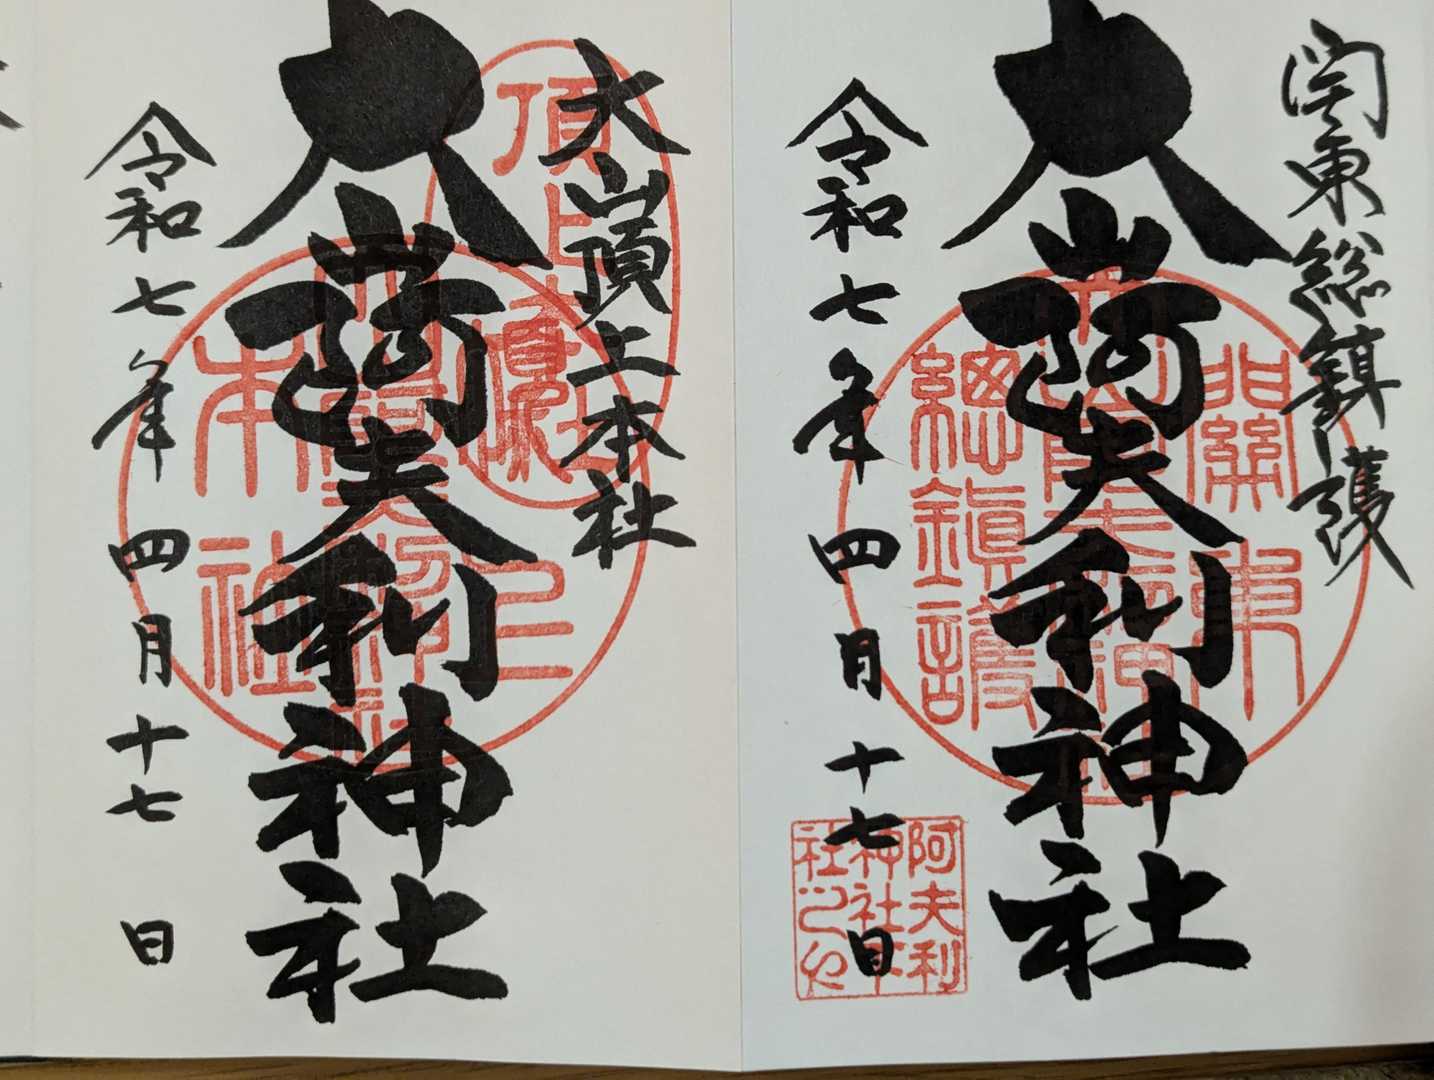 関東総鎮護
大山阿夫利神社
令和七年四月十七日
關東
總鎮護
阿夫利
神社本
社之印
大山頂上本社
大山阿夫利神社
令和七年四月十七日
頂上
本社